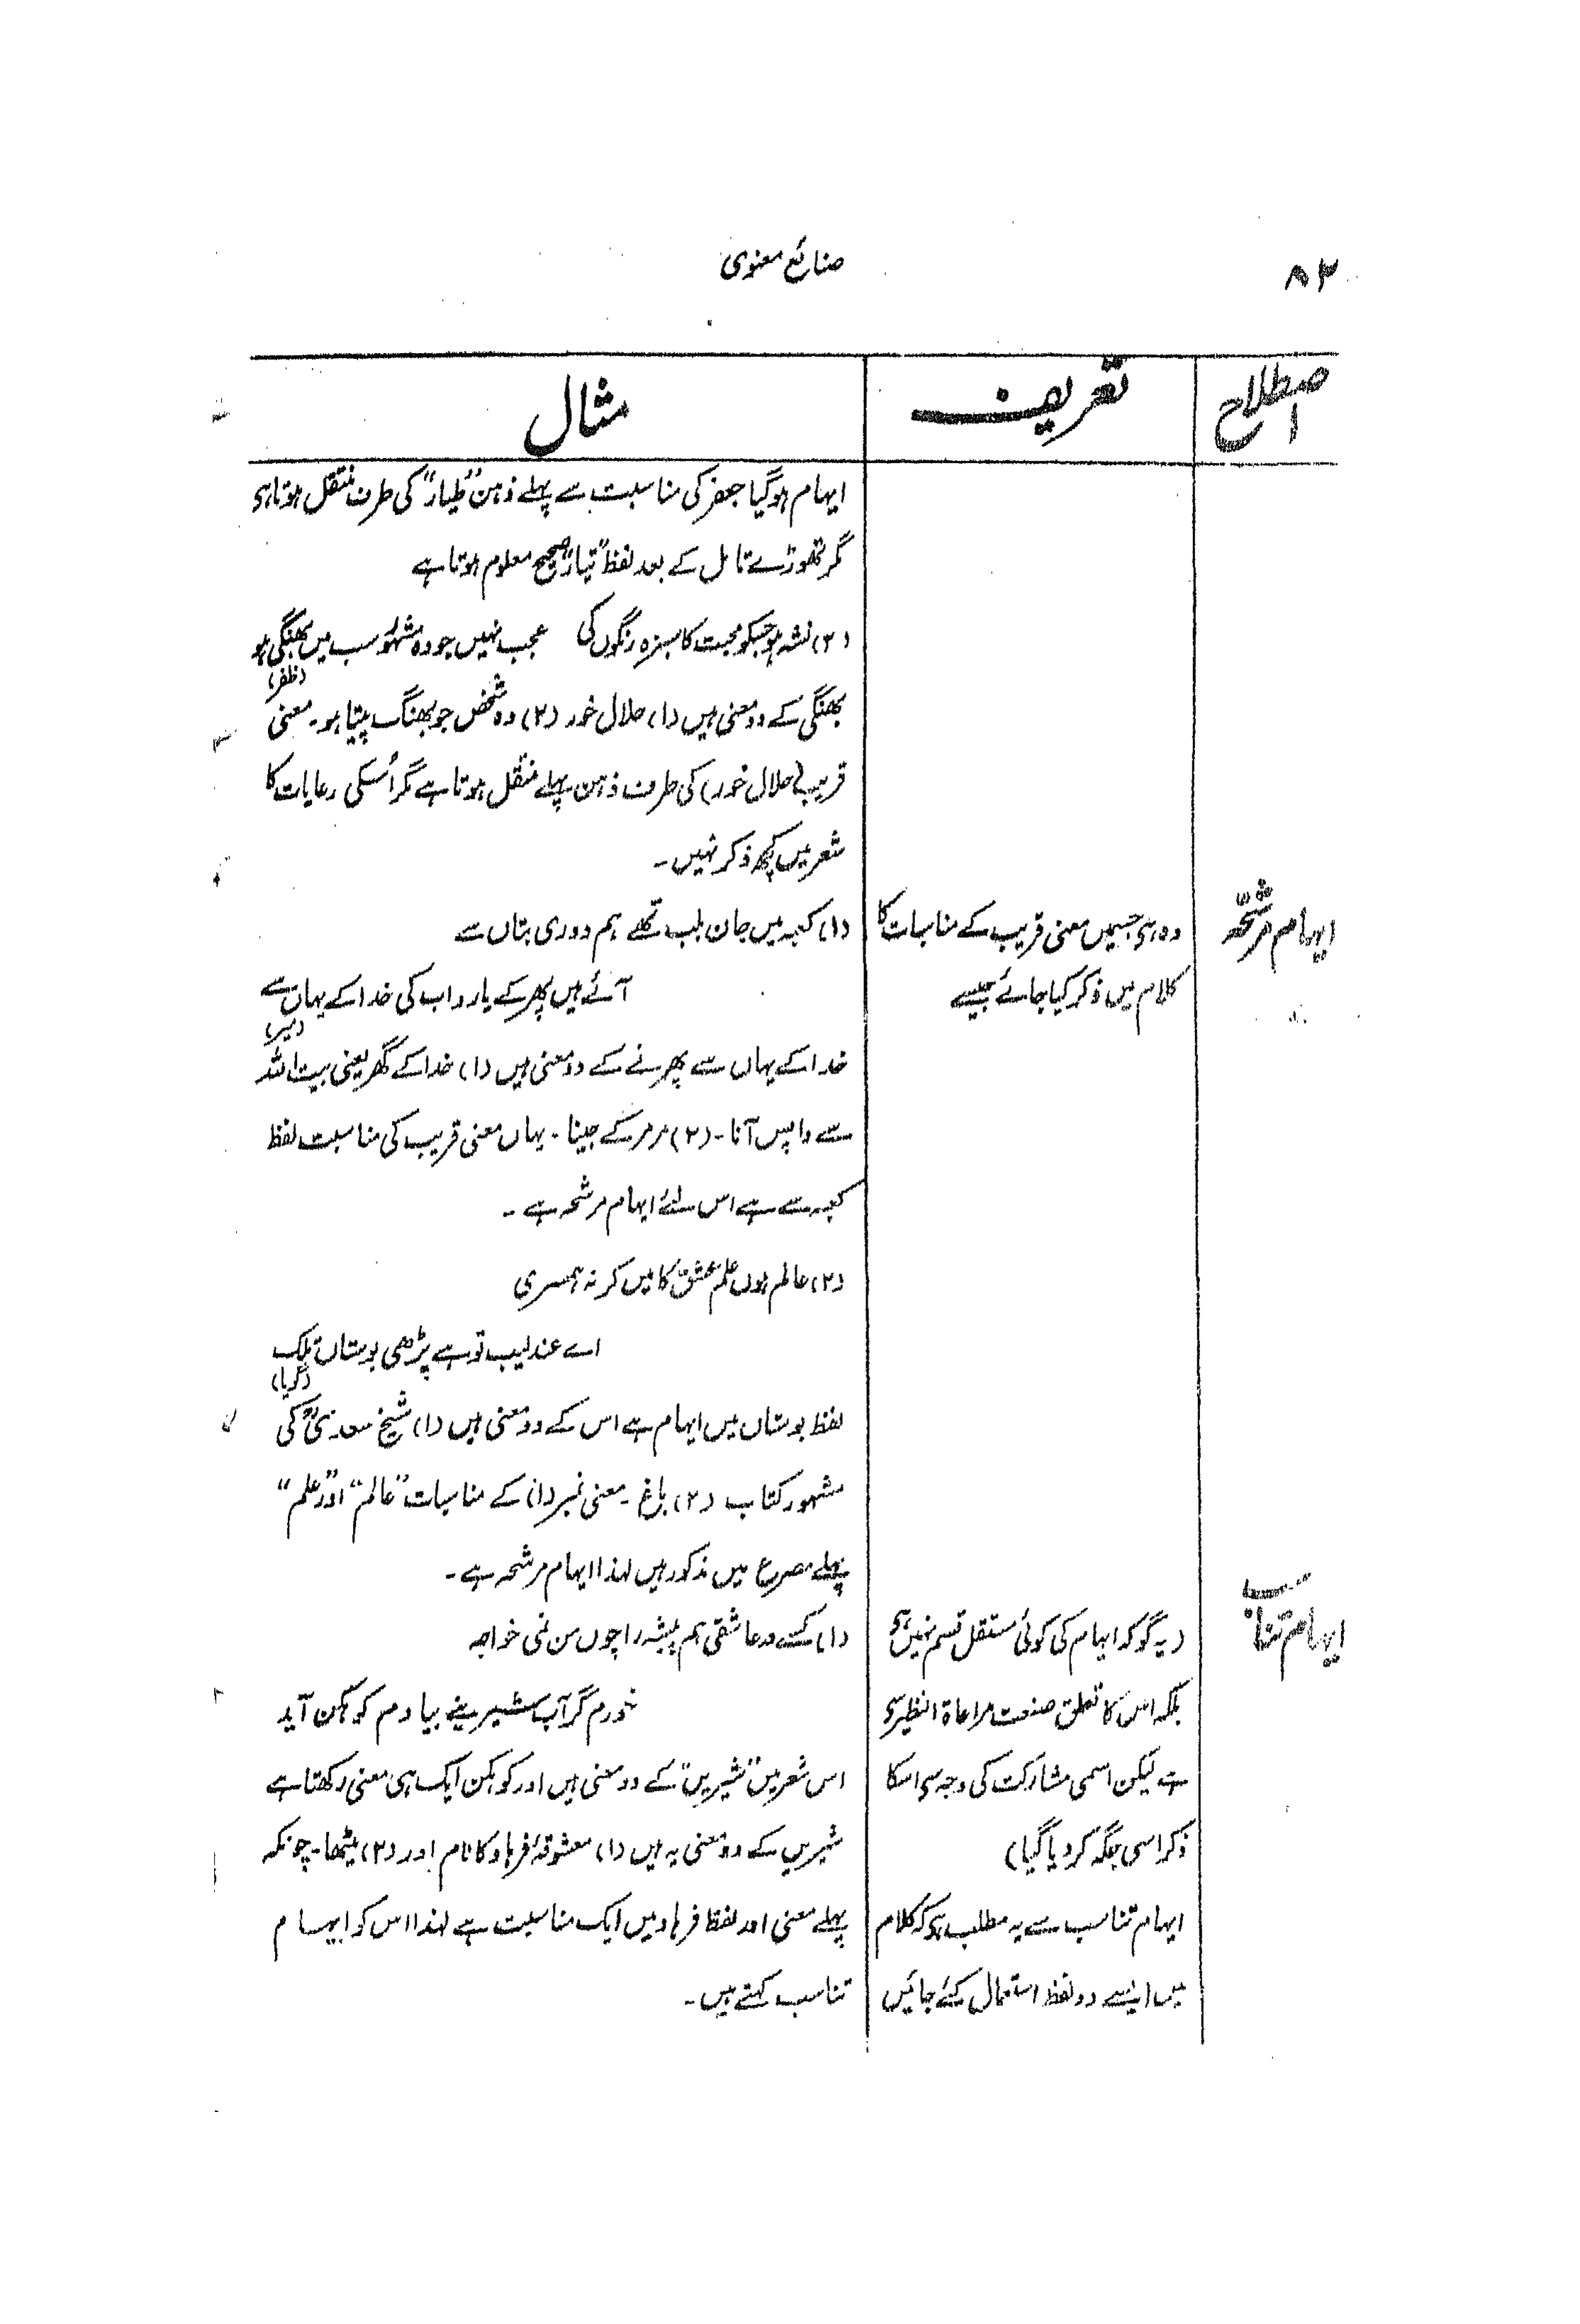 ۸۲
صنائع معنوی
اصطلاح
تعریف
مثال
ایہام ہوگیا جعفر کی مناسبت سے پہلے ذہن "طیار" کی طرف منتقل ہوتا ہی
مگر تھوڑے تامل کے بعد لفظ "تیار" صحیح معلوم ہوتا ہے
(۲) نشہ ہو جسکو محبت کا سبزہ رنگوں کی عجب نہیں جو وہ مشہور سب میں بھنگی ہو
(ظفر)
بھنگی کے دو معنی ہیں (۱) حلال خور (۲) وہ شخص جو بھنگ پیتا ہو۔ معنی
قریب (حلال خور) کی طرف ذہن پہلے منتقل ہوتا ہے مگر اُسکی رعایات کا
شعر میں کچھ ذکر نہیں۔
ایہام مرشحّہ
وہ ہی جسمیں معنی قریب کے مناسبات کا
کلام میں ذکر کیا جائے جیسے
(۱) کعبہ میں جان بلب تھے ہم دوری بتاں سے
آئے ہیں پھر کے یارو اب کی خدا کے یہاں سے
(میر)
خدا کے یہاں سے پھرنے کے دو معنی ہیں (۱) خدا کے گھر یعنی بیت اللہ
سے واپس آنا۔ (۲) مر مر کے جینا۔ یہاں معنی قریب کی مناسبت لفظ
کعبہ سے ہے اس لئے ایہام مرشحہ ہے۔
(۲) عالم ہوں علم عشق کا میں کر نہ ہمسری
اے عندلیب تو ہے پڑھی بوستاں تلک
(گویا)
لفظ بوستاں میں ایہام ہے اس کے دو معنی ہیں (۱) شیخ سعدیؒ کی
مشہور کتاب (۲) باغ۔ معنی نمبر (۱) کے مناسبات "عالم" اور "علم"
پہلے مصرع میں مذکور ہیں لہذا ایہام مرشحہ ہے۔
ایہام تناسب
(یہ گو کہ ایہام کی کوئی مستقل قسم نہیں ہی
بلکہ اس کا تعلق صنعت مراعاۃ النظیر سی
ہے لیکن اسمی مشارکت کی وجہ سی اسکا
ذکر اسی جگہ کر دیا گیا)
ایہام تناسب سے یہ مطلب ہی کہ کلام
میں ایسے دو لفظ استعمال کئے جائیں
(۱) کسے در عاشقی ہم پیشہ را چوں من نمی خواہد
خورم گر آب شیرینے بیادم کوہکن آید
اس شعر میں "شیریں" کے دو معنی ہیں اور کوہکن ایک ہی معنی رکھتا ہے
شیریں کے دو معنی یہ ہیں (۱) معشوقۂ فرہاد کا نام اور (۲) میٹھا۔ چونکہ
پہلے معنی اور لفظ فرہاد میں ایک مناسبت ہے لہذا اس کو ایہام
تناسب کہتے ہیں۔